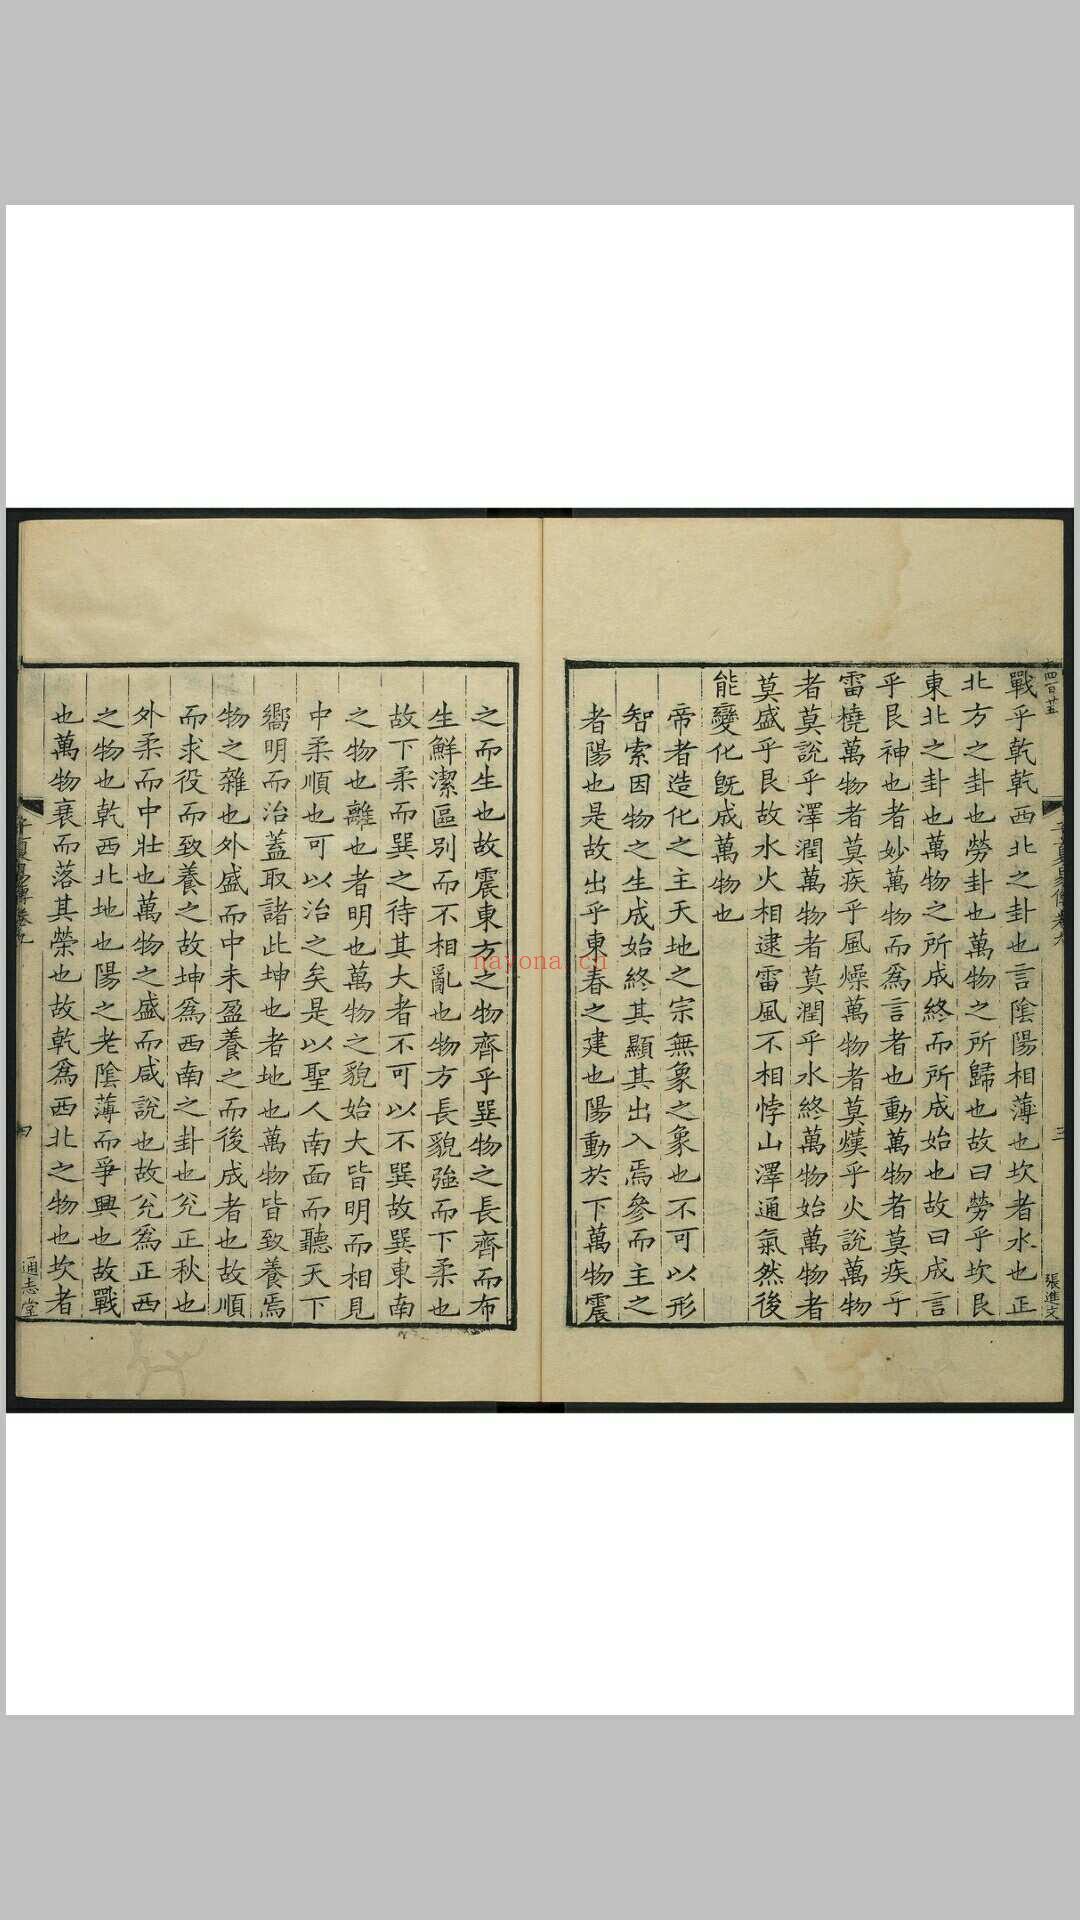 四百廿五
張進文
三
戰乎乾乾西北之卦也言陰陽相薄也坎者水也正
北方之卦也勞卦也萬物之所歸也故曰勞乎坎艮
東北之卦也萬物之所成終而所成始也故曰成言
乎艮神也者妙萬物而爲言者也動萬物者莫疾乎
雷橈萬物者莫疾乎風燥萬物者莫熯乎火說萬物
者莫說乎澤潤萬物者莫潤乎水終萬物始萬物者
莫盛乎艮故水火相逮雷風不相悖山澤通氣然後
能變化旣成萬物也
帝者造化之主天地之宗無象之象也不可以形
智索因物之生成始終其顯其出入焉參而主之
者陽也是故出乎東春之建也陽動於下萬物震
之而生也故震東方之物齊乎巽物之長齊而布
生鮮潔區別而不相亂也物方長貌強而下柔也
故下柔而巽之待其大者不可以不巽故巽東南
之物也離也者明也萬物之貌始大皆明而相見
中柔順也可以治之矣是以聖人南面而聽天下
嚮明而治蓋取諸此坤也者地也萬物皆致養焉
物之雜也外盛而中未盈養之而後成者也故順
而求役而致養之故坤爲西南之卦也兊正秋也
外柔而中壯也萬物之盛而咸說也故兊爲正西
之物也乾西北地也陽之老陰薄而爭興也故戰
也萬物衰而落其榮也故乾爲西北之物也坎者
易傳卷九
四
通志堂
nayona.cn